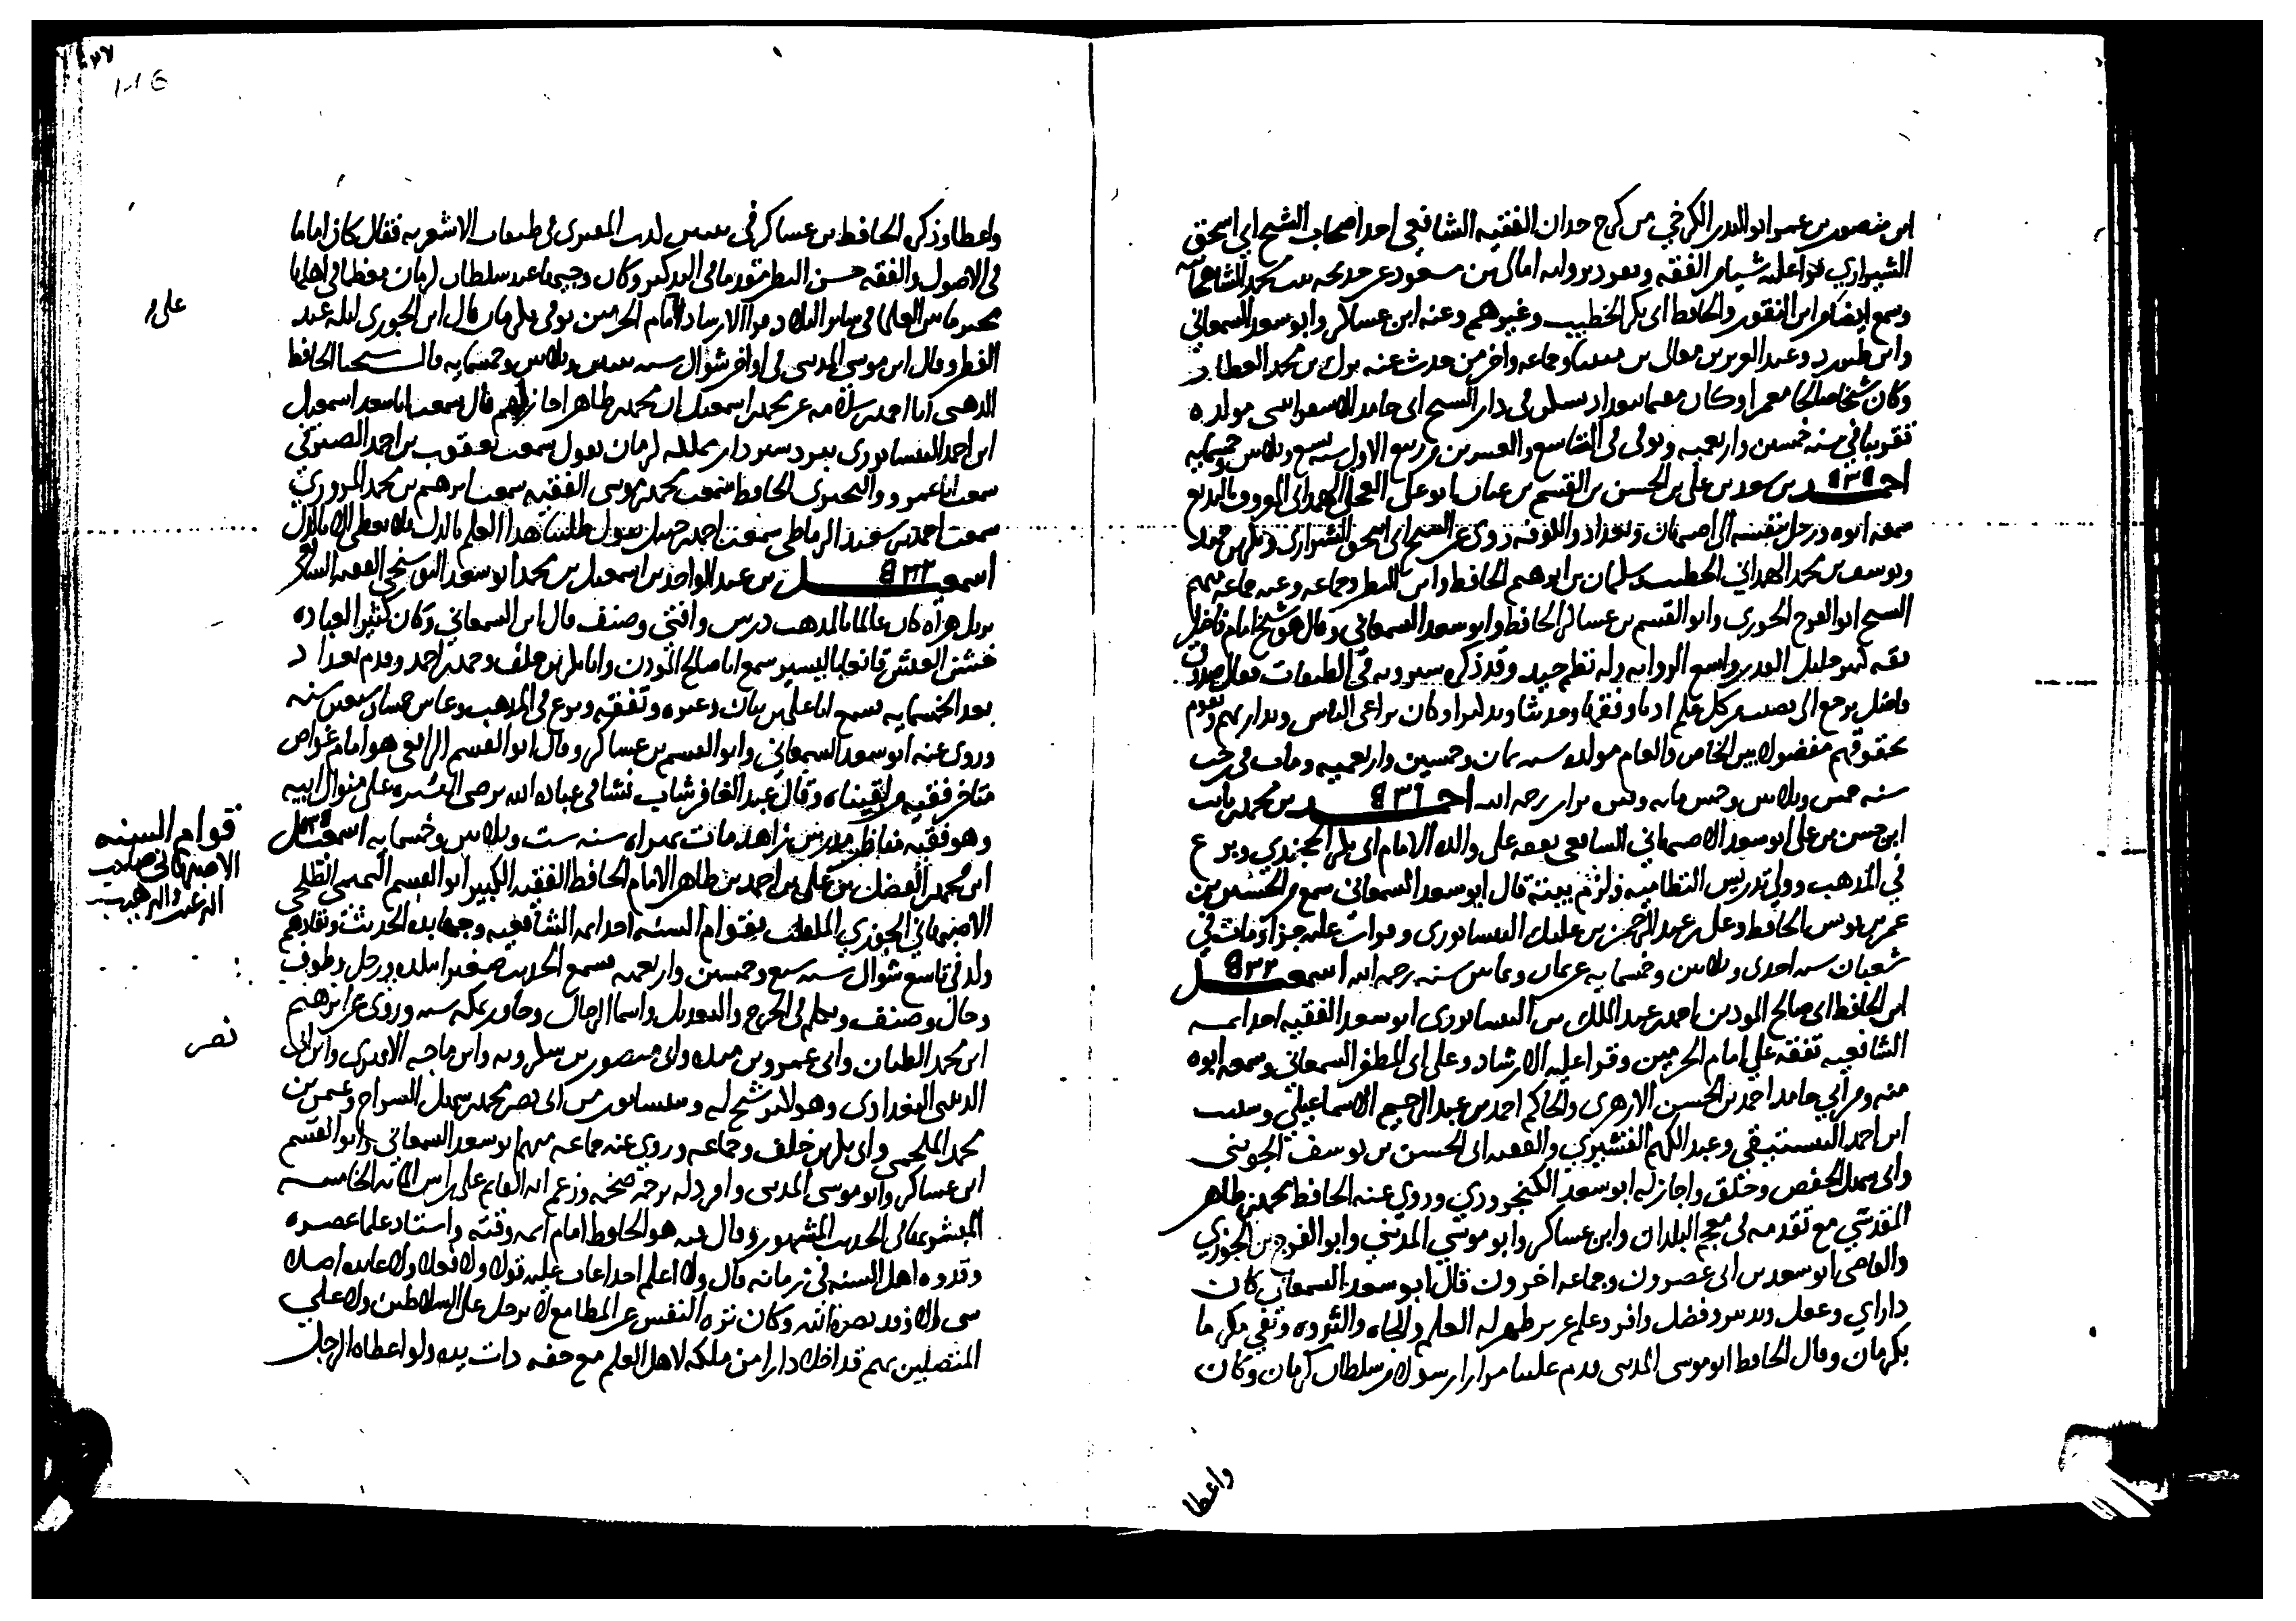 ابن منصور بن عمر ابو البدر الكرخي من كرخ جدان الفقيه الشافعي احد اصحاب الشيخ ابي اسحق
الشيرازي قرا عليه شيا من الفقه وتفرد بروايه امالي بن سمعون عن خديجه بنت محمد الشاهجانيه
وسمع ايضا من ابن النقور والحافظ ابي بكر الخطيب وغيرهم وعنه ابن عساكر وابو سعد السمعاني
وابن طبرزد وعبد العزيز بن معالي بن منينا وجماعه واخر من حدث عنه ترك بن محمد العطار
وكان شيخا صالحا معمرا وكان مقيما ببغداد يسكن في دار الشيخ ابي حامد الاسفرايني مولده
تقريبا في سنه خمسين واربعميه وتوفي في التاسع والعشرين من ربيع الاول سنه تسع وثلاثين وخمسمايه
احمد بن سعد بن علي بن الحسن بن القسم بن عنان ابو علي العجلي الهمداني المعروف بالبديع
سمعه ابوه ورحل بنفسه الى اصبهان وبغداد والكوفه روى عن الشيخ ابي اسحق الشيرازي وبكر بن حيد
ويوسف بن محمد الهمداني الخطيب وسليمان بن ابرهيم الحافظ وابن البطر وجماعه وعنه جماعه منهم
الشيخ ابو الفرج الجوزي وابو القسم بن عساكر الحافظ وابو سعد السمعاني وقال هو شيخ امام فاضل
ثقه كبير جليل القدر واسع الروايه وله نظم جيد وقد ذكره شيرويه في الطبقات فقال صدوق
فاضل يرجع الى نصيب من كل علم ادبا وفقها وحديثا وتذكيرا وكان يراعي الناس ويداريهم ويقوم
بحقوقهم مقبولا بين الخاص والعام مولده سنه ثمان وخمسين واربعميه ومات في رجب
سنه خمس وثلاثين وخمس مايه وقبره يزار رحمه الله احمد بن محمد بن ثابت
ابن حسن بن علي ابو سعد الاصبهاني الشافعي تفقه على والده الامام ابي بكر الخجندي وبرع
في المذهب وولي تدريس النظاميه ولزم بيته قال ابو سعد السمعاني سمع من الحسين بن
عمر بن يونس الحافظ وعلي بن عبد الرحمن بن عليك النيسابوري وقرات عليه جزا ومات في
شعبان سنه احدى وثلاثين وخمسمايه عن ثمان وثمانين سنه رحمه الله اسمعيل
ابن الحافظ ابي صالح الموذن احمد بن عبد الملك بن النيسابوري ابو سعد الفقيه احد ايمه
الشافعيه تفقه على امام الحرمين وقرا عليه الارشاد وعلى ابي المظفر السمعاني وسمعه ابوه
منه ومن ابي حامد احمد بن الحسن الازهري والحاكم احمد بن عبد الرحيم الاسماعيلي وشبيب
ابن احمد البستيغي وعبد الكريم القشيري والفقيه ابي الحسن بن يوسف الجويني
وابي سهل الحفصي وخلق واجاز له ابو سعد الكنجروذي وروى عنه الحافظ محمد بن طاهر
المقدسي مع تقدمه في معجم البلدان وابن عساكر وابو موسي المديني وابو الفرج بن الجوزي
والقاضي ابو سعد بن ابي عصرون وجماعه اخرون قال ابو سعد السمعاني كان
ذا راي وعقل وتدبير وفضل وافر وعلم غزير ظهر له العلم والجاه والثروه وبقي مكرما
بكرمان وقال الحافظ ابو موسى المديني قدم علينا مرارا رسولا من سلطان كرمان وكان
واعظا
واعظا وذكره الحافظ بن عساكر في تبيين كذب المفتري في طبقات الاشعريه فقال كان اماما
في الاصول والفقه حسن النظر مقدما في التذكير وكان وجيها عند سلطان كرمان معظما في اهلها
محترما بين العلما في ساير البلاد قرا الارشاد لامام الحرمين توفي بكرمان قال ابن الجوزي ليله عيد
الفطر وقال ابو موسى المديني في اواخر شوال سنه ثنتين وثلاثين وخمسمايه قال شيخنا الحافظ
الذهبي انا احمد بن سلامه عن محمد بن اسمعيل ان محمد بن طاهر اجاز لهم قال سمعت ابا سعد اسمعيل
ابن احمد النيسابوري ببردسير دار مملكه كرمان يقول سمعت يعقوب بن احمد الصيرفي
سمعت ابا عمرو البحيري الحافظ سمعت محمد بن موسى الفقيه سمعت ابرهيم بن محمد المروزي
سمعت احمد بن سعيد الرباطي سمعت احمد بن حنبل يقول طلبنا هذا العلم بالذل فلا نعطي الا بالذل
اسمعيل بن عبد الواحد بن اسمعيل بن محمد ابو سعد البوشنجي الفقيه الشافعي
نزيل هراه كان عالما بالمذهب درس وافتى وصنف قال ابن السمعاني وكان كثير العباده
خشن العيش قانعا باليسير سمع ابا صالح الموذن وابا بكر بن خلف وحمد بن احمد وقدم بغداد
بعد الخمسمايه فسمع ابا علي بن نبهان وغيره وتفقه وبرع في المذهب وعاش خمسا وسبعين سنه
وروى عنه ابو سعد السمعاني وابو القسم بن عساكر وقال ابو القسم الرافعي هو امام غواص
متاخر فقيه من لقيناه وقال عبد الغافر شاب نشا في عباده الله مرضي السيره على منوال ابيه
وهو فقيه مناظر مدرس زاهد مات بهراه سنه ست وثلاثين وخمسمايه اسمعيل
ابن محمد بن الفضل بن علي بن احمد بن طاهر الامام الحافظ الفقيه الكبير ابو القسم التيمي الطلحي
الاصبهاني الجوزي الملقب بقوام السنه احد ايمه الشافعيه وجهابذه الحديث ونقادهم
ولد في تاسع شوال سنه سبع وخمسين واربعميه فسمع الحديث صغيرا ببلده ورحل وطوف
وجال وصنف وتكلم في الجرح والتعديل واسما الرجال وجاور بمكه سنه وروى عن ابرهيم
ابن محمد الطيان وابي عمرو بن منده وابي منصور بن شكرويه وابن ماجه الابهري وابن ابي
الدنيا البغدادي وهو اكبر شيخ له وبنيسابور من ابي نصر محمد بن سهل السراج وعثمن بن
محمد المحمي وابي بكر بن خلف وجماعه وروى عنه جماعه منهم ابو سعد السمعاني وابو القسم
ابن عساكر وابو موسى المديني وافرد له ترجمه ضخمه وزعم انه القايم على راس المايه الخامسه
المبشر به في الحديث المشهور وقال فيه هو الحافظ امام ايمه وقته واستاذ علما عصره
وقدوه اهل السنه في زمانه قال ولا اعلم احدا عاب عليه قولا ولا فعلا ولا عانده اصلا
في شي الا وقد نصره الله وكان نزه النفس عن المطامع لا يدخل على السلاطين ولا على
المتصلين بهم قد اخلى دارا من ملكه لاهل العلم مع خفه ذات يده ولو اعطاه الرجل
قوام السنه
الاصبهاني صاحب
الترغيب والترهيب
نصر